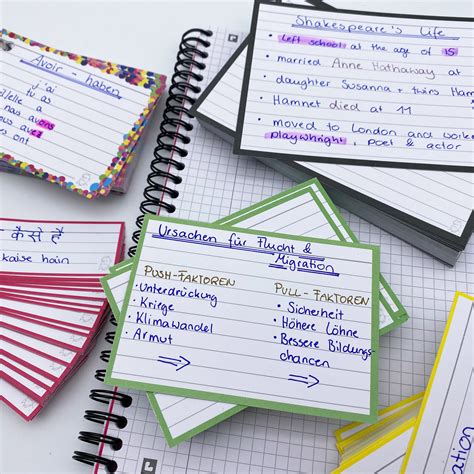 Avoir - haben
j'ai
tu as
elle a
nous avons
vous avez
ont
Shakespeare's Life
• Left school at the age of 15
• married Anne Hathaway at
• daughter Susanna + twins Ham
Hamnet died at 11
• moved to London and worked
playwright, poet & actor
कैसे हैं
kaise hain
Ursachen für Flucht &
Migration
PUSH-FAKTOREN
• Unterdrückung
• Kriege
• Klimawandel
• Armut
PULL-FAKTOREN
• Sicherheit
• Höhere Löhne
• Bessere Bildungs-
chancen